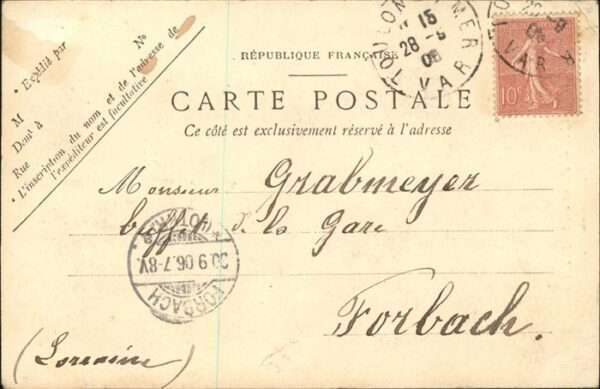 N°
Expédié par
et de l'adresse de
M
Dont à
Rue
L'inscription du nom
l'expéditeur est facultative
RÉPUBLIQUE FRANÇAISE
CARTE POSTALE
Ce côté est exclusivement réservé à l'adresse
TOULON MER
15
28 -9
06
VAR
-9
06
VAR
10c
Monsieur Grabmeyer
buffet de la Gare
Forbach.
(Lorraine)
30.9.06.7-8V.
FORBACH